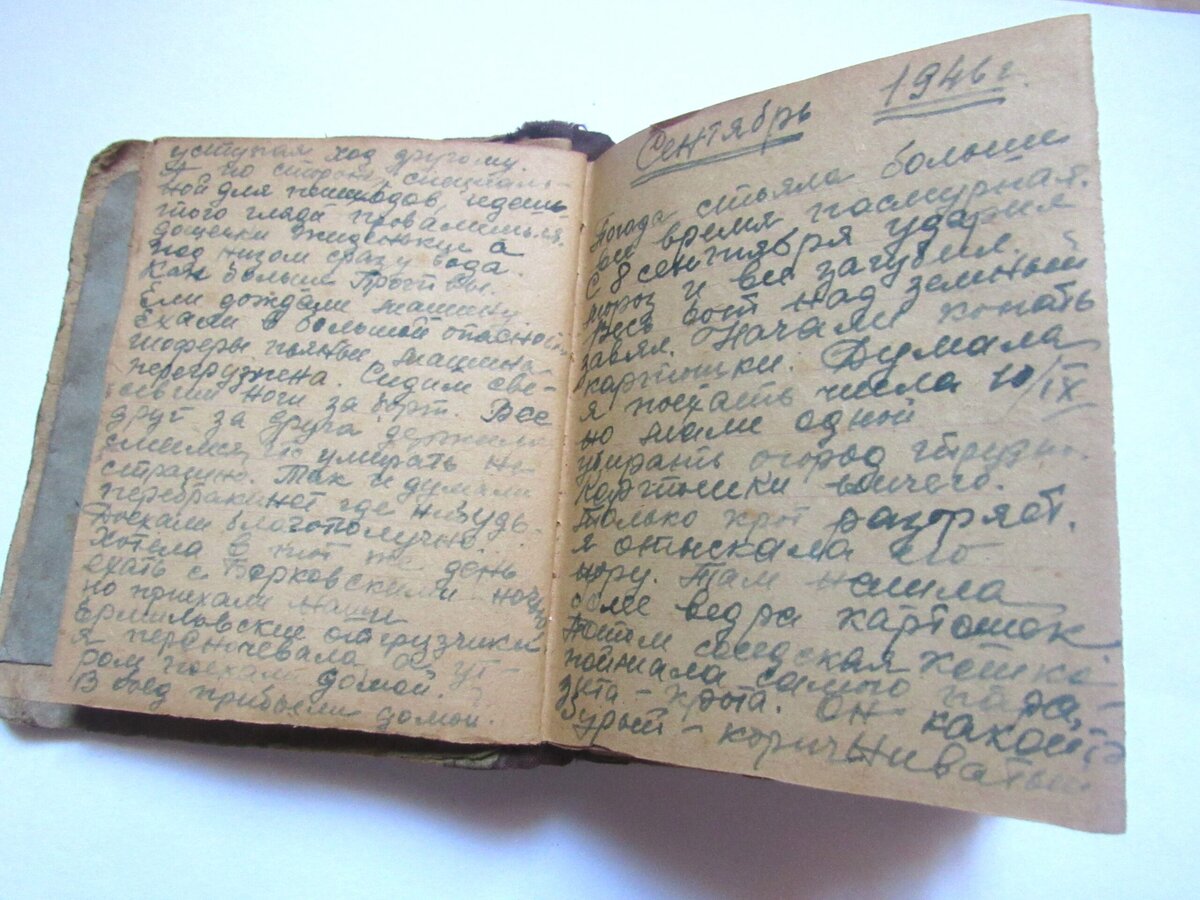 уступая ход другому.
А по стороне специаль-
ной для пешеходов, идешь
того гляди провалишься
дощечки жиденькие а
под низом сразу вода.
Как больши Протвы.
Ели дождали машину
Ехали в большой опасности
шоферы пьяные машина
перегружена. Сидим све-
севши ноги за борт. Все
друг за друга держимся
смиимся, но умирать не
страшно. Так и думали
перебракинет где нибудь.
Поехали благополучно.
Хотела в тот же день
ехать с Борковскими - ночью
но приехали наши
Ермиловские отгрузчики
я переночевала и ут-
ром поехали домой.
В обед прибыли домой.
Сентябрь 1946 г.
Погода стояла больши
все время пасмурная.
С 8 сентября ударил
мороз и все загубил.
Весь бот над земный
завял. Начали копать
картошки. Думала
я поехать числа 10/IX
но маме одной
убирать огород трудно.
Картошки ничего.
Только крот разоряет.
я отыскала его
нору. Там нашла
ведра картошек
Потом соседская кошка
поймала самого пара-
зита - крота. Он какойто
урод - коричниватый